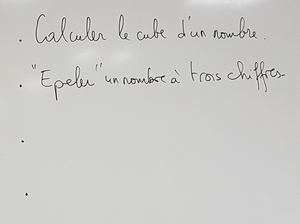 . Calculer le cube d'un nombre.
. "Epeler" un nombre à trois chiffres.
.
.